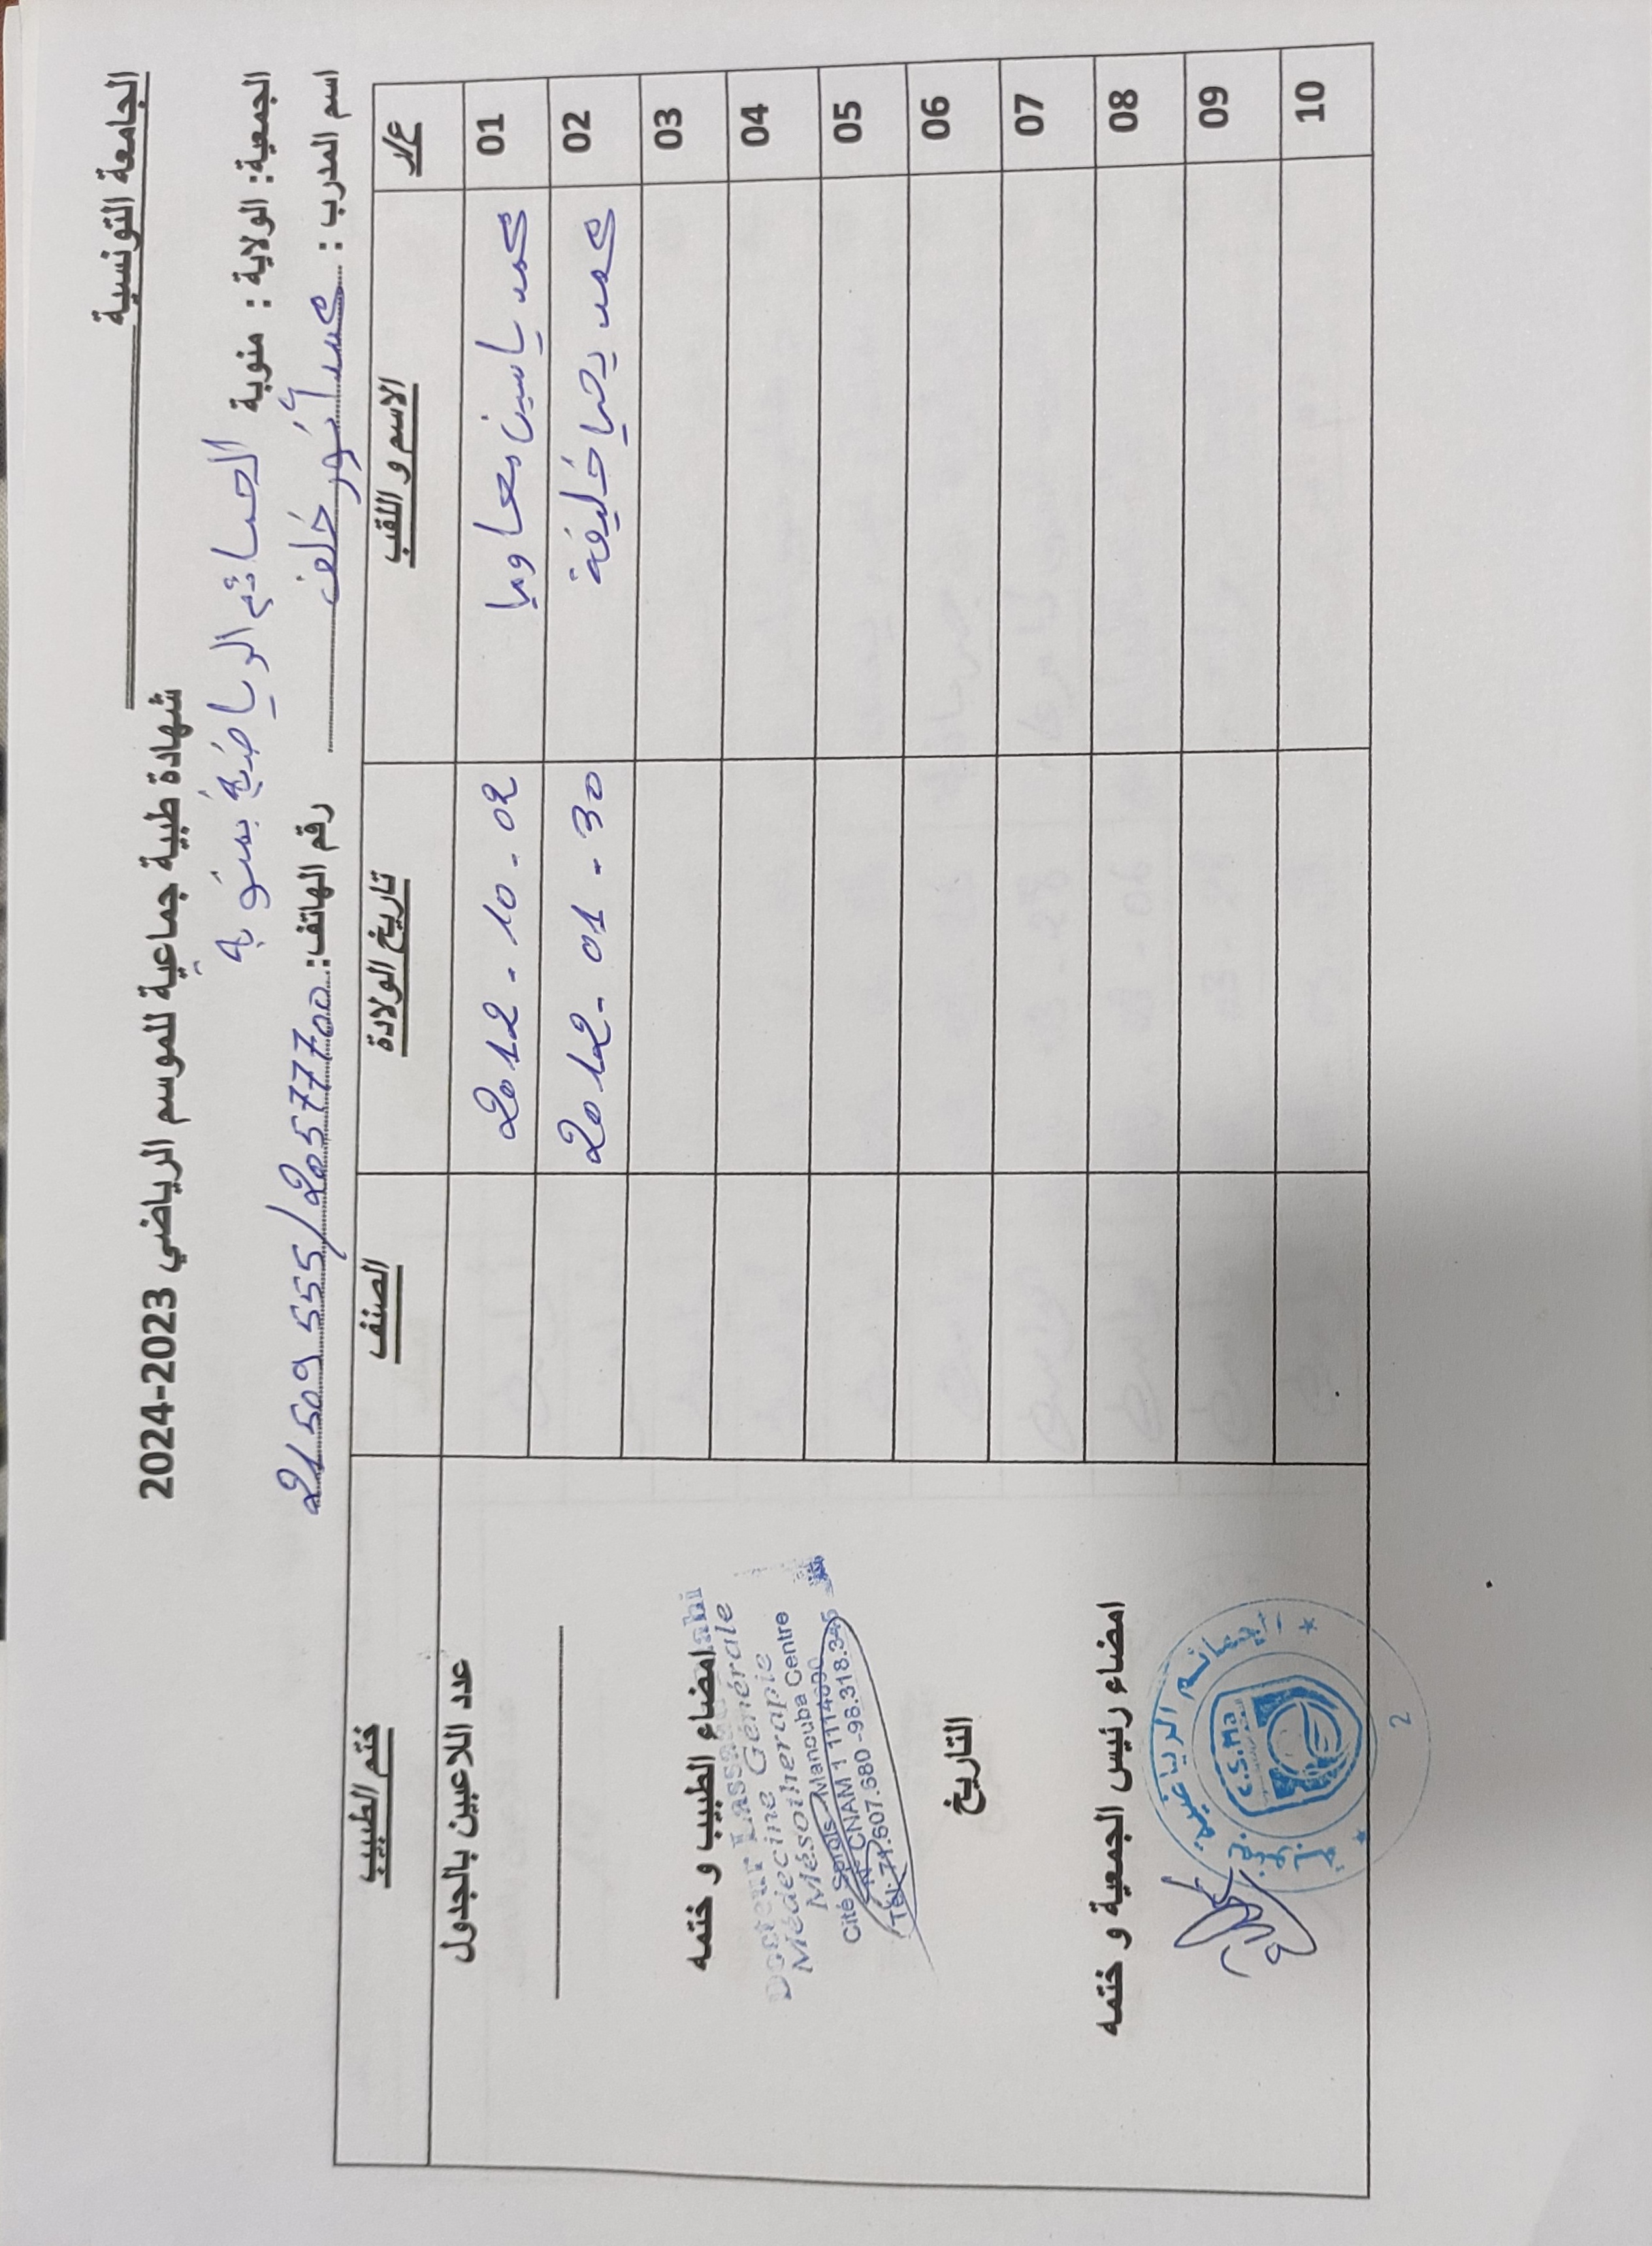 الجامعة التونسية
شهادة طبية جماعية للموسم الرياضي 2023-2024
الجمعية: الولاية : منوبة الحسائم الرياضية بمنوبة
اسم المدرب : محمد أنور خلف رقم الهاتف: 21509555/20577700
ع/ر الاسم و اللقب تاريخ الولادة الصنف ختم الطبيب
01 محمد ياسين معاويا 2012-10-02
02 محمد يحيا خليفة 2012-01-30
03
04
05
06
07
08
09
10
عدد اللاعبين بالجدول
امضاء الطبيب و ختمه
Docteur Lassaad
Médecine Générale
Mésotherapie
Cité Manouba Centre
CNAM 1
Tél: 71.607.680 -98.318.345
التاريخ
امضاء رئيس الجمعية و ختمه
الرياضية
C.S.Ma
2